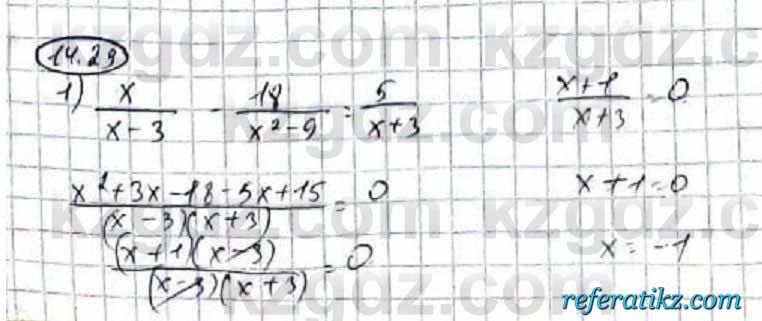 14.29
1) x/(x-3) - 18/(x²-9) = 5/(x+3)
(x²+3x-18-5x+15)/((x-3)(x+3)) = 0
((x+1)(x-3))/((x-3)(x+3)) = 0
(x+1)/(x+3) = 0
x+1=0
x=-1
kzgdz.com kzgdz.com
kzgdz.com kzgdz.com
kzgdz.com kzgdz.com
referatikz.com